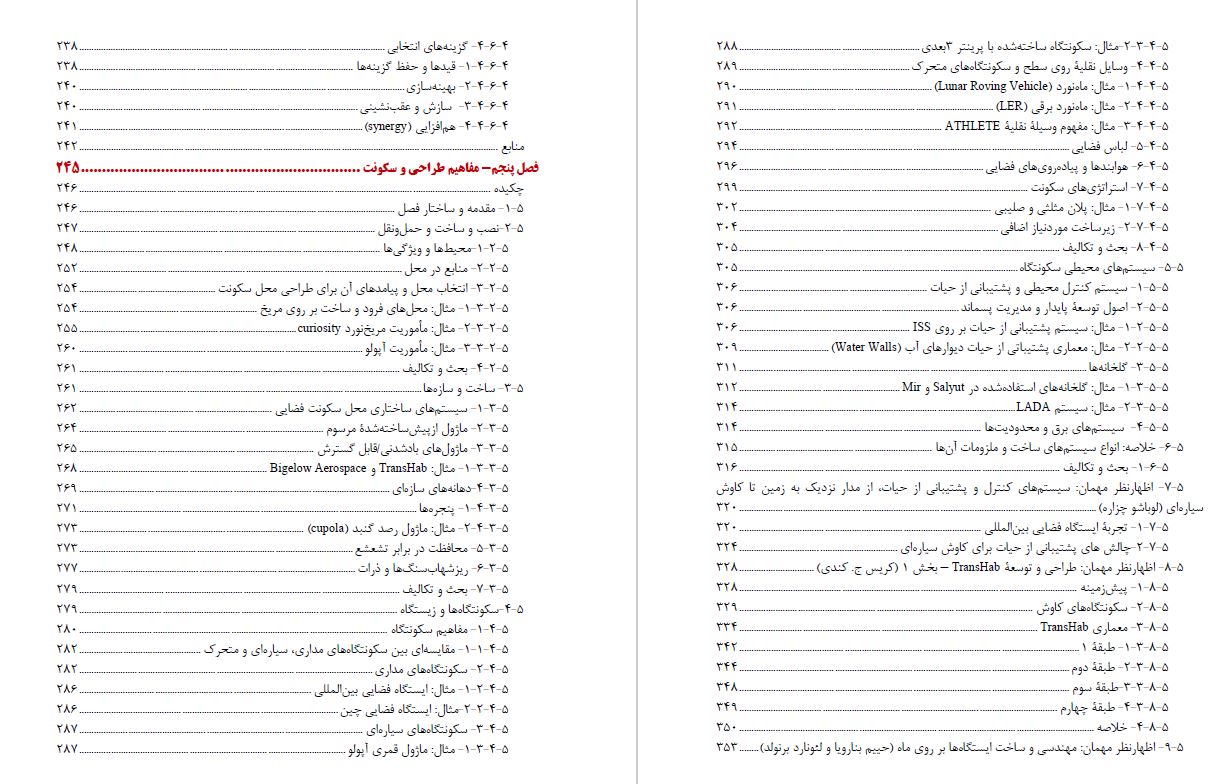 ۴-۶-۴- گزینه‌های انتخابی ........ ۲۳۸
۴-۶-۴-۱- قیدها و حفظ گزینه‌ها ........ ۲۳۸
۴-۶-۴-۲- بهینه‌سازی ........ ۲۴۰
۴-۶-۴-۳- سازش و عقب‌نشینی ........ ۲۴۰
۴-۶-۴-۴- هم‌افزایی (synergy) ........ ۲۴۱
منابع ........ ۲۴۲
فصل پنجم– مفاهیم طراحی و سکونت ........ ۲۴۵
چکیده ........ ۲۴۶
۵-۱- مقدمه و ساختار فصل ........ ۲۴۶
۵-۲-نصب و ساخت و حمل‌ونقل ........ ۲۴۷
۵-۲-۱-محیط‌ها و ویژگی‌ها ........ ۲۴۸
۵-۲-۲- منابع در محل ........ ۲۵۲
۵-۲-۳- انتخاب محل و پیامدهای آن برای طراحی محل سکونت ........ ۲۵۴
۵-۲-۳-۱- مثال: محل‌های فرود و ساخت بر روی مریخ ........ ۲۵۴
۵-۲-۳-۲- مثال: مأموریت مریخ‌نورد curiosity ........ ۲۵۵
۵-۲-۳-۳- مثال: مأموریت آپولو ........ ۲۶۰
۵-۲-۴- بحث و تکالیف ........ ۲۶۱
۵-۳- ساخت و سازه‌ها ........ ۲۶۱
۵-۳-۱- سیستم‌های ساختاری محل سکونت فضایی ........ ۲۶۲
۵-۳-۲- ماژول ازپیش‌ساخته‌شدهٔ مرسوم ........ ۲۶۴
۵-۳-۳- ماژول‌های بادشدنی/قابل گسترش ........ ۲۶۵
۵-۳-۳-۱- مثال: TransHab و Bigelow Aerospace ........ ۲۶۸
۵-۳-۴-دهانه‌های سازه‌ای ........ ۲۶۹
۵-۳-۴-۱- پنجره‌ها ........ ۲۷۱
۵-۳-۴-۲- مثال: ماژول رصد گنبد (cupola) ........ ۲۷۳
۵-۳-۵- محافظت در برابر تشعشع ........ ۲۷۳
۵-۳-۶- ریزشهاب‌سنگ‌ها و ذرات ........ ۲۷۷
۵-۳-۷- بحث و تکالیف ........ ۲۷۹
۵-۴-سکونتگاه‌ها و زیستگاه ........ ۲۷۹
۵-۴-۱- مفاهیم سکونتگاه ........ ۲۸۰
۵-۴-۱-۱- مقایسه‌ای بین سکونتگاه‌های مداری، سیاره‌ای و متحرک ........ ۲۸۲
۵-۴-۲- سکونتگاه‌های مداری ........ ۲۸۲
۵-۴-۲-۱- مثال: ایستگاه فضایی بین‌المللی ........ ۲۸۶
۵-۴-۲-۲-مثال: ایستگاه فضایی چین ........ ۲۸۶
۵-۴-۳- سکونتگاه‌های سیاره‌ای ........ ۲۸۷
۵-۴-۳-۱- مثال: ماژول قمری آپولو ........ ۲۸۷
۵-۴-۳-۲-مثال: سکونتگاه ساخته‌شده با پرینتر ۳بعدی ........ ۲۸۸
۵-۴-۴- وسایل نقلیهٔ روی سطح و سکونتگاه‌های متحرک ........ ۲۸۹
۵-۴-۴-۱- مثال: ماه‌نورد (Lunar Roving Vehicle) ........ ۲۹۰
۵-۴-۴-۲- مثال: ماه‌نورد برقی (LER) ........ ۲۹۱
۵-۴-۴-۳- مثال: مفهوم وسیلهٔ نقلیهٔ ATHLETE ........ ۲۹۲
۵-۴-۵- لباس فضایی ........ ۲۹۴
۵-۴-۶- هوابندها و پیاده‌روی‌های فضایی ........ ۲۹۶
۵-۴-۷- استراتژی‌های سکونت ........ ۲۹۹
۵-۴-۷-۱- مثال: پلان مثلثی و صلیبی ........ ۳۰۲
۵-۴-۷-۲- زیرساخت موردنیاز اضافی ........ ۳۰۴
۵-۴-۸- بحث و تکالیف ........ ۳۰۵
۵-۵- سیستم‌های محیطی سکونتگاه ........ ۳۰۵
۵-۵-۱- سیستم کنترل محیطی و پشتیبانی از حیات ........ ۳۰۶
۵-۵-۲- اصول توسعهٔ پایدار و مدیریت پسماند ........ ۳۰۶
۵-۵-۲-۱- مثال: سیستم پشتیبانی از حیات بر روی ISS ........ ۳۰۶
۵-۵-۲-۲- مثال: معماری پشتیبانی از حیات دیوارهای آب (Water Walls) ........ ۳۰۹
۵-۵-۳- گلخانه‌ها ........ ۳۱۱
۵-۵-۳-۱- مثال: گلخانه‌های استفاده‌شده در Salyut و Mir ........ ۳۱۲
۵-۵-۳-۲- مثال: سیستم LADA ........ ۳۱۴
۵-۵-۴- سیستم‌های برق و محدودیت‌ها ........ ۳۱۴
۵-۶- خلاصه: انواع سیستم‌های ساخت و ملزومات آن‌ها ........ ۳۱۵
۵-۶-۱- بحث و تکالیف ........ ۳۱۶
۵-۷- اظهارنظر مهمان: سیستم‌های کنترل و پشتیبانی از حیات، از مدار نزدیک به زمین تا کاوش
سیاره‌ای (لوباشو چزاره) ........ ۳۲۰
۵-۷-۱- تجربهٔ ایستگاه فضایی بین‌المللی ........ ۳۲۰
۵-۷-۲-چالش های پشتیبانی از حیات برای کاوش سیاره‌ای ........ ۳۲۴
۵-۸- اظهارنظر مهمان: طراحی و توسعهٔ TransHab – بخش ۱ (کریس ج. کندی) ........ ۳۲۸
۵-۸-۱- پیش‌زمینه ........ ۳۲۸
۵-۸-۲- سکونتگاه‌های کاوش ........ ۳۲۹
۵-۸-۳- معماری TransHab ........ ۳۳۴
۵-۸-۳-۱- طبقهٔ ۱ ........ ۳۴۲
۵-۸-۳-۲- طبقهٔ دوم ........ ۳۴۴
۵-۸-۳-۳-طبقهٔ سوم ........ ۳۴۸
۵-۸-۳-۴- طبقهٔ چهارم ........ ۳۴۹
۵-۸-۴- خلاصه ........ ۳۵۰
۵-۹- اظهارنظر مهمان: مهندسی و ساخت ایستگاه‌ها بر روی ماه (حییم بنارویا و لئونارد برنولد) ........ ۳۵۳